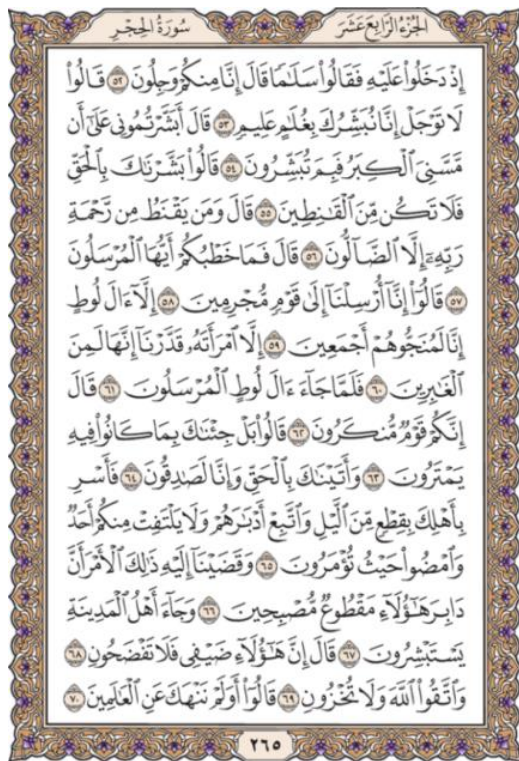 الجُزْءُ الرَّابِعَ عَشَرَ
سُورَةُ الحِجْرِ
إِذْ دَخَلُوا۟ عَلَيْهِ فَقَالُوا۟ سَلَـٰمًا قَالَ إِنَّا مِنكُمْ وَجِلُونَ ٥٢ قَالُوا۟
لَا تَوْجَلْ إِنَّا نُبَشِّرُكَ بِغُلَـٰمٍ عَلِيمٍ ٥٣ قَالَ أَبَشَّرْتُمُونِى عَلَىٰٓ أَن
مَّسَّنِىَ ٱلْكِبَرُ فَبِمَ تُبَشِّرُونَ ٥٤ قَالُوا۟ بَشَّرْنَـٰكَ بِٱلْحَقِّ
فَلَا تَكُن مِّنَ ٱلْقَـٰنِطِينَ ٥٥ قَالَ وَمَن يَقْنَطُ مِن رَّحْمَةِ
رَبِّهِۦٓ إِلَّا ٱلضَّآلُّونَ ٥٦ قَالَ فَمَا خَطْبُكُمْ أَيُّهَا ٱلْمُرْسَلُونَ
٥٧ قَالُوٓا۟ إِنَّآ أُرْسِلْنَآ إِلَىٰ قَوْمٍ مُّجْرِمِينَ ٥٨ إِلَّآ ءَالَ لُوطٍ
إِنَّا لَمُنَجُّوهُمْ أَجْمَعِينَ ٥٩ إِلَّا ٱمْرَأَتَهُۥ قَدَّرْنَآ إِنَّهَا لَمِنَ
ٱلْغَـٰبِرِينَ ٦٠ فَلَمَّا جَآءَ ءَالَ لُوطٍ ٱلْمُرْسَلُونَ ٦١ قَالَ
إِنَّكُمْ قَوْمٌ مُّنكَرُونَ ٦٢ قَالُوا۟ بَلْ جِئْنَـٰكَ بِمَا كَانُوا۟ فِيهِ
يَمْتَرُونَ ٦٣ وَأَتَيْنَـٰكَ بِٱلْحَقِّ وَإِنَّا لَصَـٰدِقُونَ ٦٤ فَأَسْرِ
بِأَهْلِكَ بِقِطْعٍ مِّنَ ٱلَّيْلِ وَٱتَّبِعْ أَدْبَـٰرَهُمْ وَلَا يَلْتَفِتْ مِنكُمْ أَحَدٌ
وَٱمْضُوا۟ حَيْثُ تُؤْمَرُونَ ٦٥ وَقَضَيْنَآ إِلَيْهِ ذَٰلِكَ ٱلْأَمْرَ أَنَّ
دَابِرَ هَـٰٓؤُلَآءِ مَقْطُوعٌ مُّصْبِحِينَ ٦٦ وَجَآءَ أَهْلُ ٱلْمَدِينَةِ
يَسْتَبْشِرُونَ ٦٧ قَالَ إِنَّ هَـٰٓؤُلَآءِ ضَيْفِى فَلَا تَفْضَحُونِ ٦٨
وَٱتَّقُوا۟ ٱللَّهَ وَلَا تُخْزُونِ ٦٩ قَالُوٓا۟ أَوَلَمْ نَنْهَكَ عَنِ ٱلْعَـٰلَمِينَ ٧٠
٢٦٥